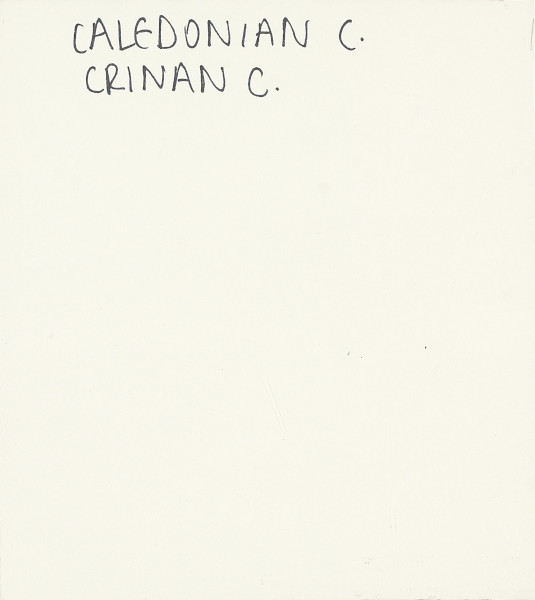 CALEDONIAN C.
CRINAN C.